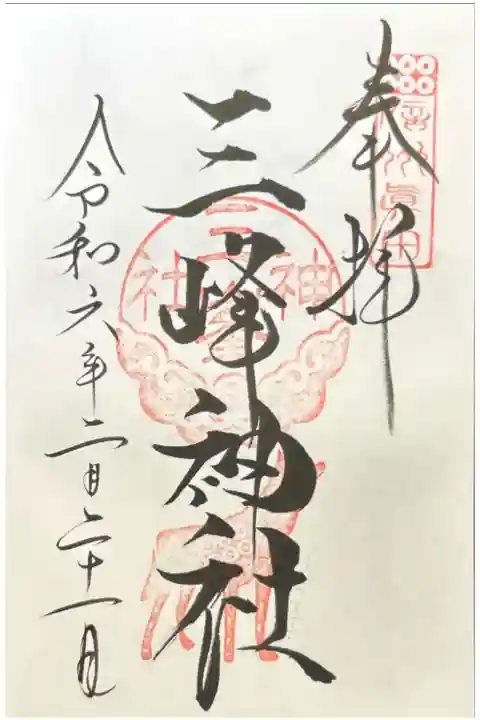 奉拝
信州真田
三峰神社
三峯神社
令和六年二月二十一日